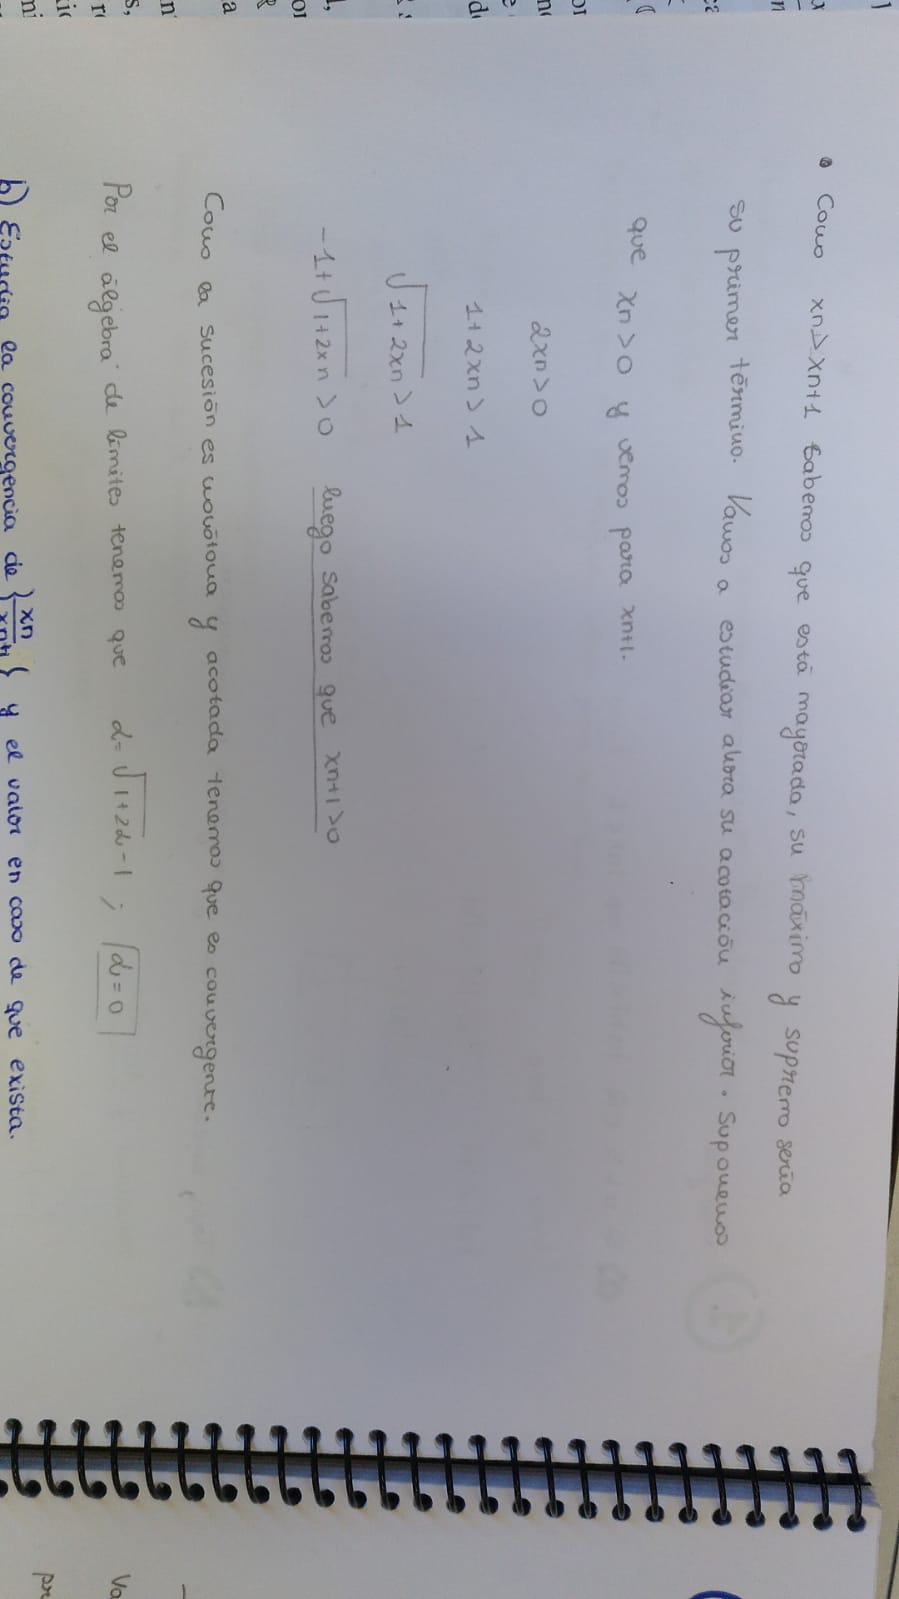 • Como xn>xn+1 sabemos que está mayorada, su máximo y supremo sería
su primer término. Vamos a estudiar ahora su acotación inferior. Suponemos
que xn>0 y vemos para xn+1.
2xn>0
1+2xn>1
√1+2xn>1
-1+√1+2xn>0 luego sabemos que xn+1>0
Como la sucesión es monótona y acotada tenemos que es convergente.
Por el álgebra de límites tenemos que α=√1+2α-1; α=0
b) Estudia la convergencia de {xn/xn+1} y el valor en caso de que exista.